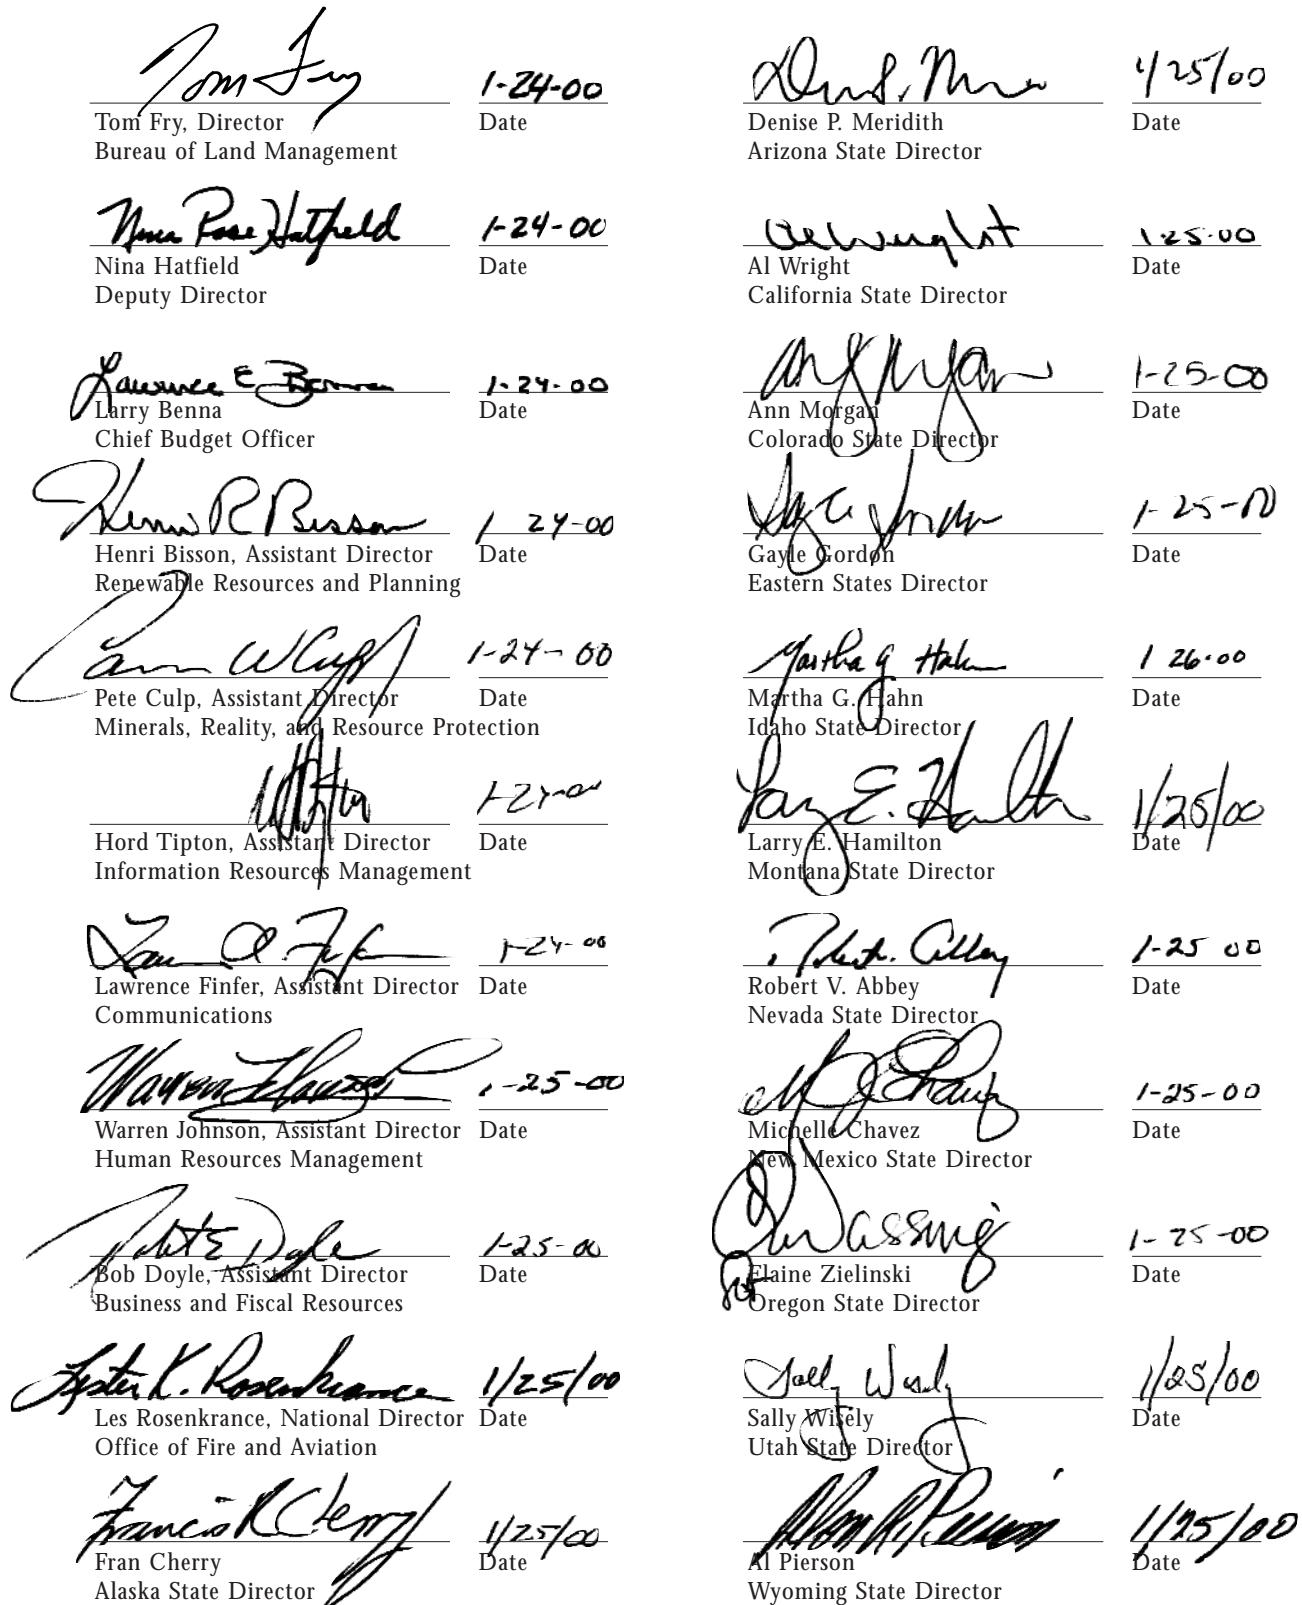 Tom Fry 1-24-00
Tom Fry, Director Date
Bureau of Land Management
Nina Rose Hatfield 1-24-00
Nina Hatfield Date
Deputy Director
Lawrence E Benna 1-24-00
Larry Benna Date
Chief Budget Officer
Henri R Bisson 1 24-00
Henri Bisson, Assistant Director Date
Renewable Resources and Planning
W Culp 1-24-00
Pete Culp, Assistant Director Date
Minerals, Reality, and Resource Protection
1-24-00
Hord Tipton, Assistant Director Date
Information Resources Management
1-24-00
Lawrence Finfer, Assistant Director Date
Communications
Warren Johnson 1-25-00
Warren Johnson, Assistant Director Date
Human Resources Management
Robt E Doyle 1-25-00
Bob Doyle, Assistant Director Date
Business and Fiscal Resources
Lester K. Rosenkrance 1/25/00
Les Rosenkrance, National Director Date
Office of Fire and Aviation
Francis R Cherry 1/25/00
Fran Cherry Date
Alaska State Director
1/25/00
Denise P. Meridith Date
Arizona State Director
Al Wright 1-25-00
Al Wright Date
California State Director
Ann J Morgan 1-25-00
Ann Morgan Date
Colorado State Director
1-25-00
Gayle Gordon Date
Eastern States Director
Martha G Hahn 1 26-00
Martha G. Hahn Date
Idaho State Director
Larry E. Hamilton 1/25/00
Larry E. Hamilton Date
Montana State Director
Robert Abbey 1-25 00
Robert V. Abbey Date
Nevada State Director
M J Chavez 1-25-00
Michelle Chavez Date
New Mexico State Director
1-25-00
for Elaine Zielinski Date
Oregon State Director
Sally Wisely 1/25/00
Sally Wisely Date
Utah State Director
Alan R. Pierson 1/25/00
Al Pierson Date
Wyoming State Director